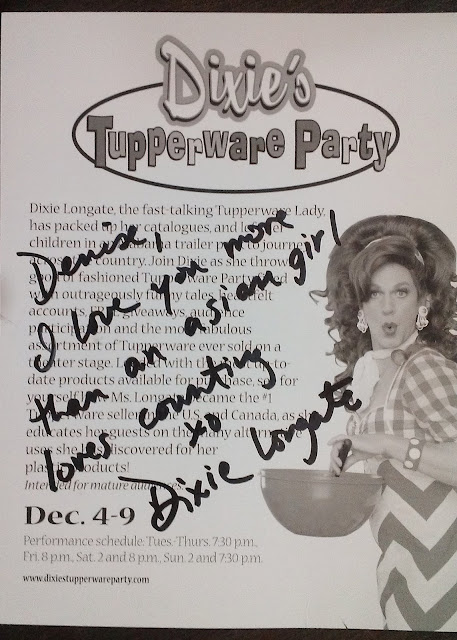 Dixie's
Tupperware Party
Dixie Longate, the fast-talking Tupperware Lady,
has packed up her catalogues, and left her
children in an trailer park to journey
country. Join Dixie as she throws
good ol' fashioned Tupperware Party filled
with outrageously funny tales, heartfelt
accounts, giveaways, audience
participation and the most fabulous
assortment of Tupperware ever sold on a
theater stage. Loaded with the up-to-
date products available for purchase, see for
yourself how Ms. Longate became the #1
Tupperware seller in the U.S. and Canada, as she
educates her guests on the many alternative
uses she has discovered for her
plastic products!
Intended for mature audiences.
Denise,
I love you more
than an asian girl
loves counting
xo
Dixie Longate
Dec. 4-9
Performance schedule: Tues.-Thurs. 7:30 p.m.,
Fri. 8 p.m., Sat. 2 and 8 p.m., Sun. 2 and 7:30 p.m.
www.dixiestupperwareparty.com